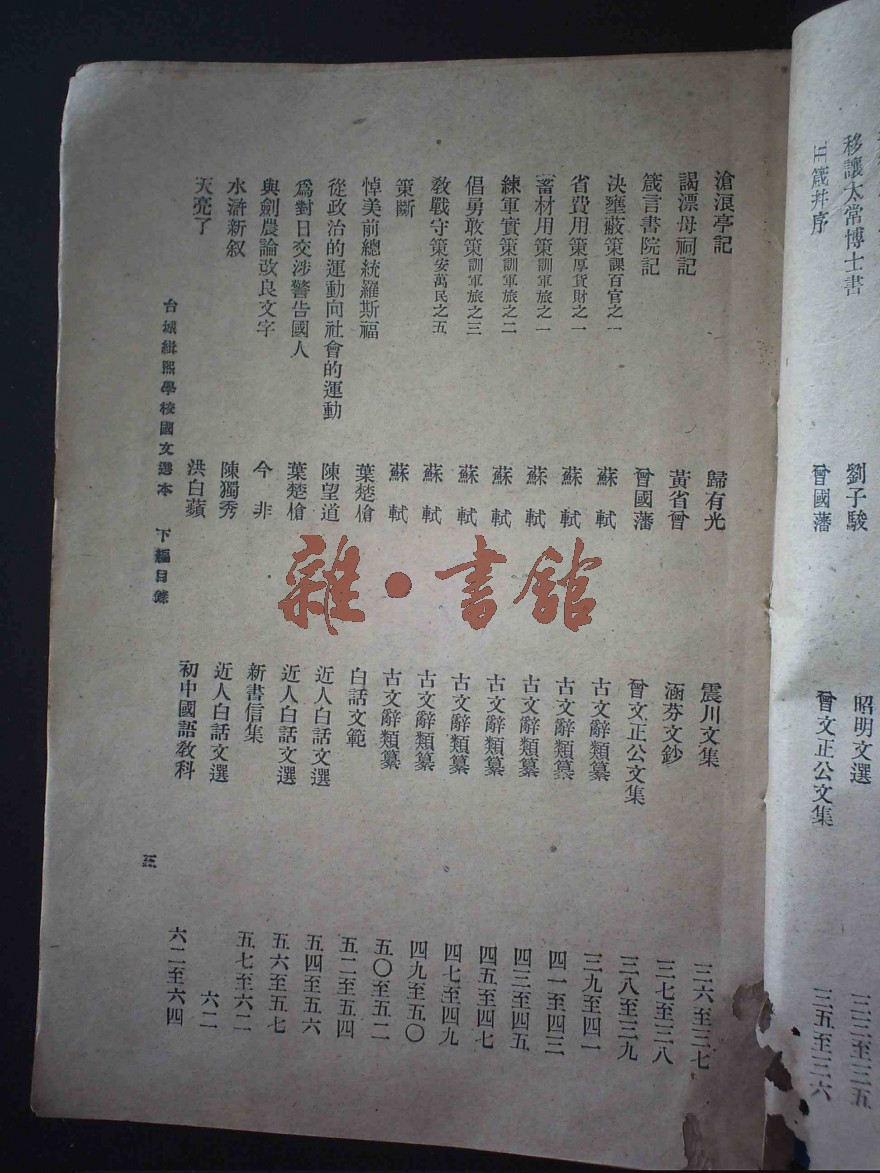 移讓太常博士書 劉子駿 昭明文選 三三至三五
五箴幷序 曾國藩 曾文正公文集 三五至三六
滄浪亭記 歸有光 震川文集 三六至三七
謁漂母祠記 黃省曾 涵芬文鈔 三七至三八
箴言書院記 曾國藩 曾文正公文集 三八至三九
決壅蔽策課百官之一 蘇軾 古文辭類纂 三九至四一
省費用策厚貨財之一 蘇軾 古文辭類纂 四一至四三
蓄材用策訓軍旅之一 蘇軾 古文辭類纂 四三至四五
練軍實策訓軍旅之二 蘇軾 古文辭類纂 四五至四七
倡勇敢策訓軍旅之三 蘇軾 古文辭類纂 四七至四九
敎戰守策安萬民之五 蘇軾 古文辭類纂 四九至五〇
策斷 蘇軾 古文辭類纂 五〇至五二
悼美前總統羅斯福 葉楚傖 白話文範 五二至五四
從政治的運動向社會的運動 陳望道 近人白話文選 五四至五六
爲對日交涉警告國人 葉楚傖 近人白話文選 五六至五七
與劍農論改良文字 今非 新書信集 五七至六二
水滸新叙 陳獨秀 近人白話文選 六二
天亮了 洪白蘋 初中國語敎科 六二至六四
台城緝熙學校國文選本 下編目錄 三
雜·書館